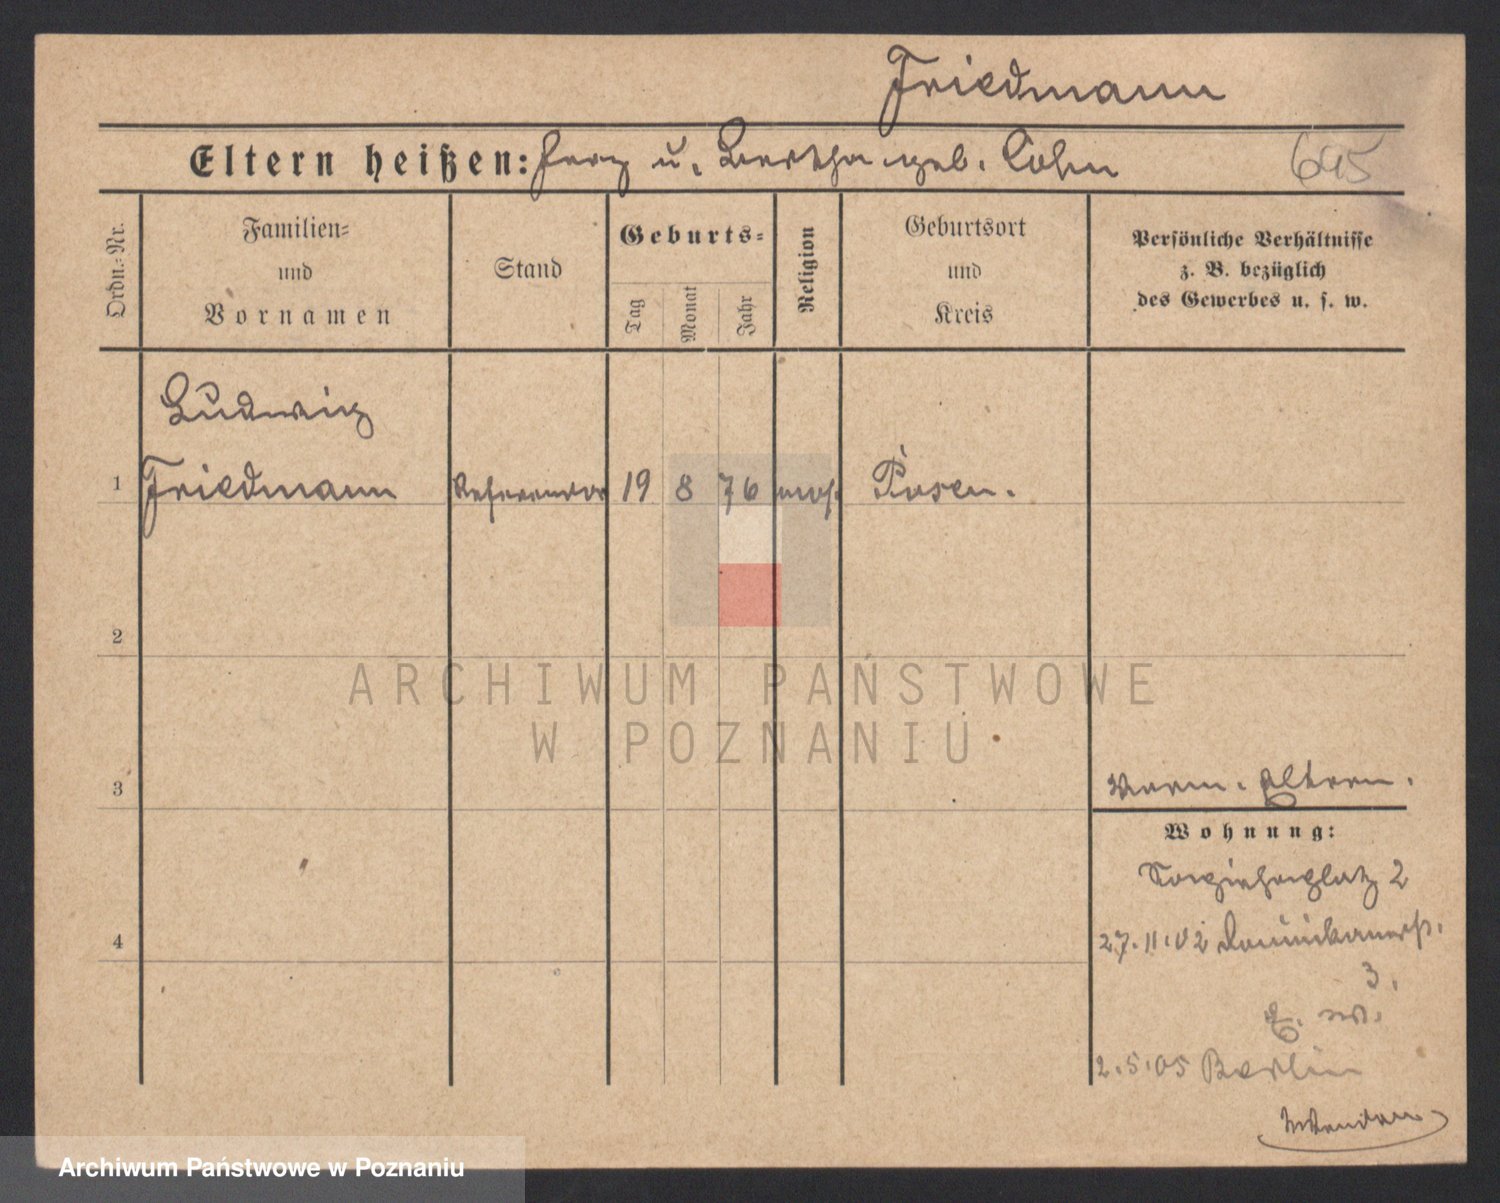 Friedmann
Eltern heißen: Herz u. Bertha geb. Cohn
695
Ordn.-Nr.
Familien- und Vornamen
Stand
Geburts-
Tag
Monat
Jahr
Religion
Geburtsort und Kreis
Persönliche Verhältnisse z. B. bezüglich des Gewerbes u. s. w.
Ludwig
1 Friedmann Referendar 19 8 76 mos. Posen.
2
3
4
Eltern.
Wohnung:
Sapiehaplatz 2
27.11.02 Dominikanerst.
3.
E. w.
2.5.05 Berlin
Wenden
ARCHIWUM PAŃSTWOWE
W POZNANIU
Archiwum Państwowe w Poznaniu